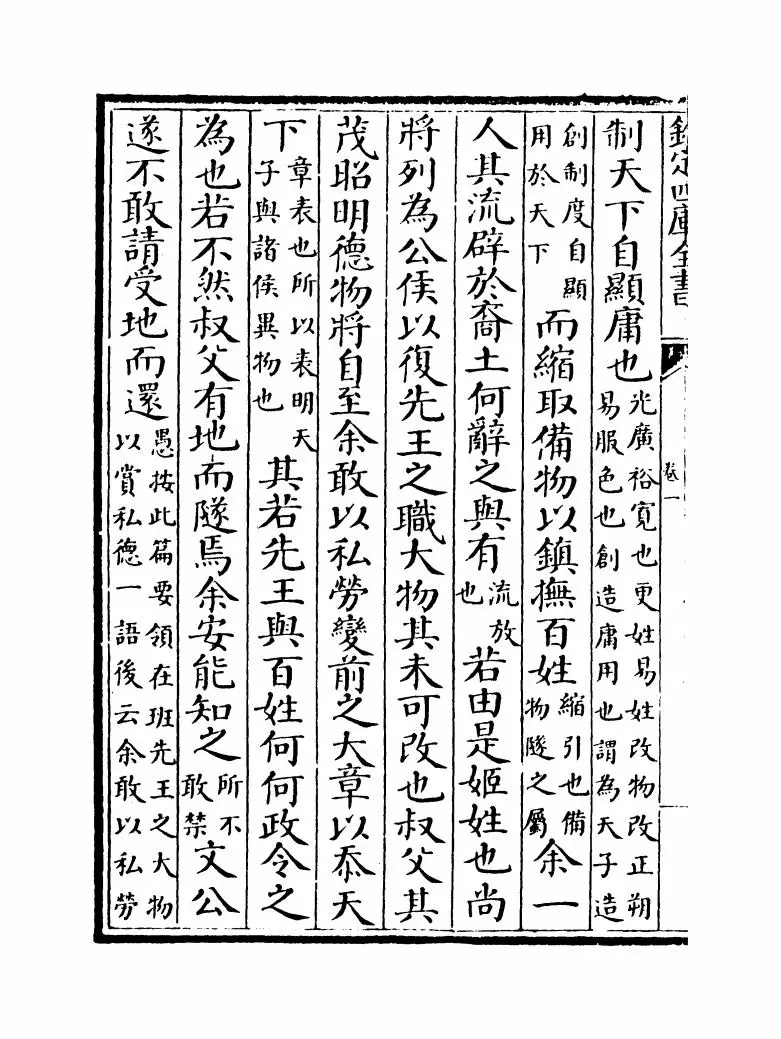 欽定四庫全書 卷一
制天下自顯庸也光廣裕寛也更姓易姓改物改正朔易服色也創造庸用也謂為天子造
創制度自顯用於天下而縮取備物以鎮撫百姓縮引也備物隧之屬余一
人其流辟於裔土何辭之與有流放也若由是姬姓也尚
將列為公侯以復先王之職大物其未可改也叔父其
茂昭明德物將自至余敢以私勞變前之大章以忝天
下章表也所以表明天子與諸侯異物也其若先王與百姓何何政令之
為也若不然叔父有地而隧焉余安能知之所不敢禁文公
遂不敢請受地而還愚按此篇要領在班先王之大物以賞私德一語後云余敢以私勞